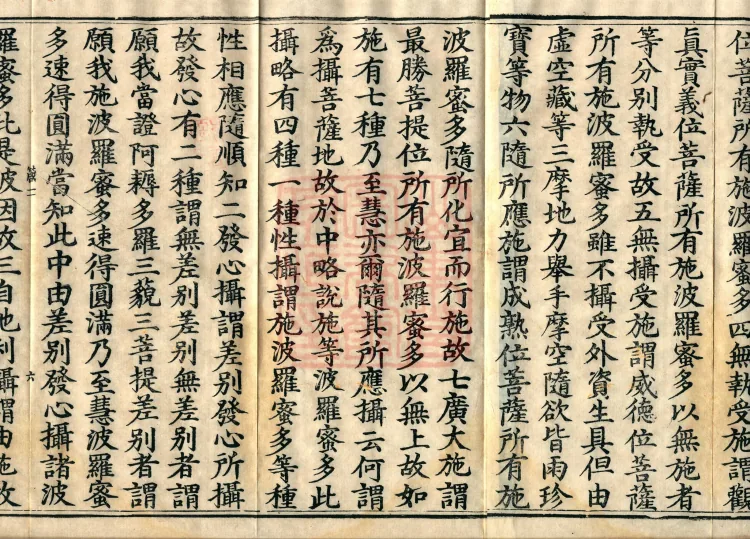 位菩薩所有施波羅蜜多四無執受施謂觀
眞實義位菩薩所有施波羅蜜多以無施者
等分別執受故五無攝受施謂威德位菩薩
所有施波羅蜜多雖不攝受外資生具但由
虛空藏等三摩地力舉手摩空隨欲皆雨珍
寶等物六隨所應施謂成熟位菩薩所有施
波羅蜜多隨所化宜而行施故七廣大施謂
最勝菩提位所有施波羅蜜多以無上故如
施有七種乃至慧亦爾隨其所應攝云何謂
爲攝菩薩地故於中略說施等波羅蜜多此
攝略有四種一種性攝謂施波羅蜜多等種
性相應隨順知二發心攝謂差別發心所攝
故發心有二種謂無差別差別無差別者謂
願我當證阿耨多羅三藐三菩提差別者謂
願我施波羅蜜多速得圓滿乃至慧波羅蜜
多速得圓滿當知此中由差別發心攝諸波
六
羅蜜多此是彼因故三自他利攝謂由施故